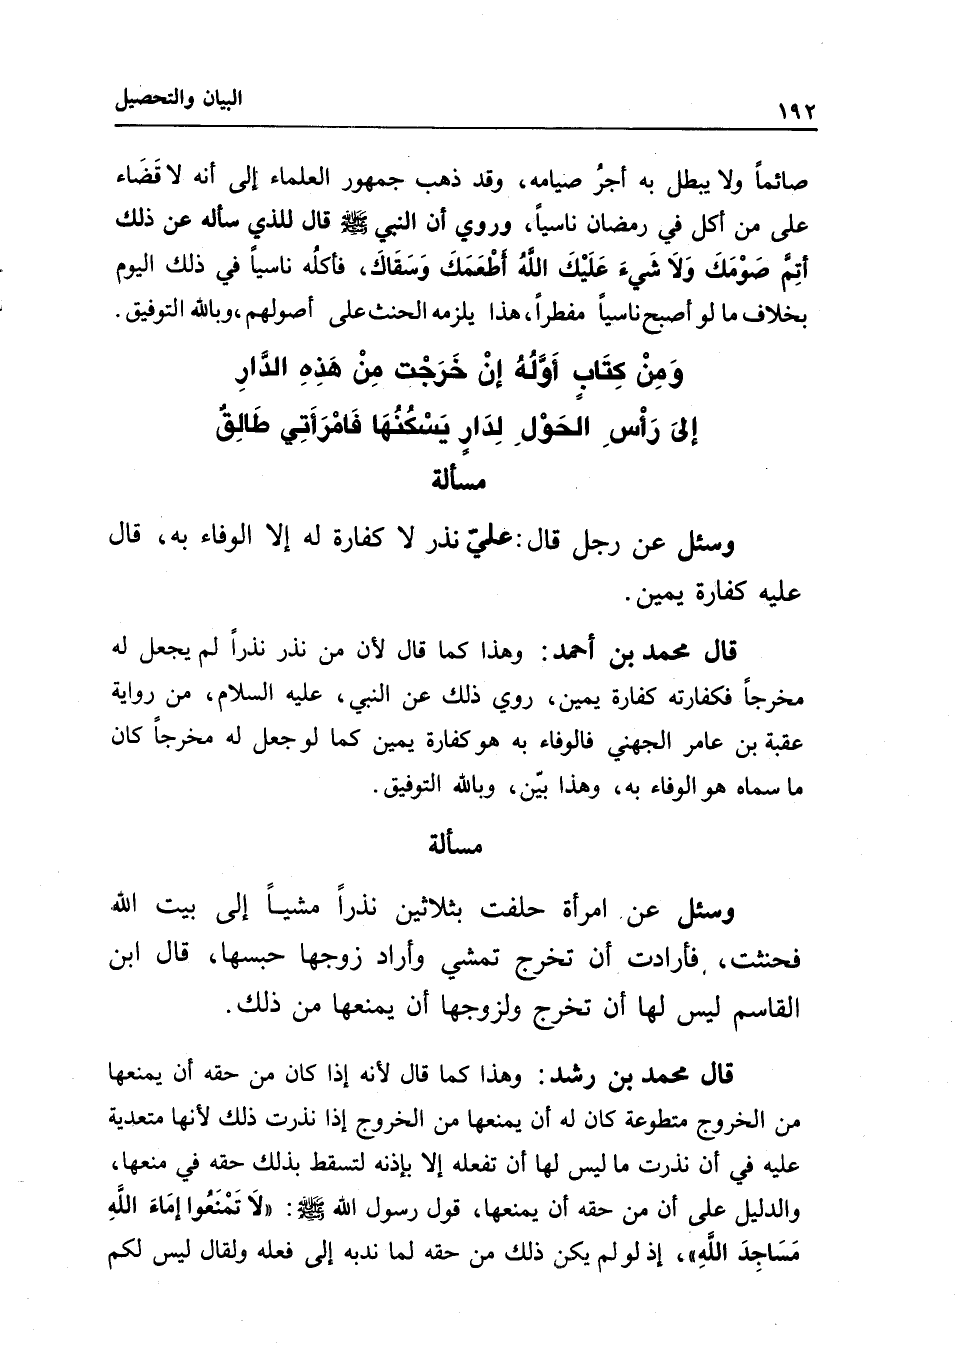 ١٩٢
البيان والتحصيل
صائماً ولا يبطل به أجرُ صيامه، وقد ذهب جمهور العلماء إلى أنه لا قَضَاء
على من أكل في رمضان ناسياً، وروي أن النبي ﷺ قال للذي سأله عن ذلك
أتِمَّ صَوْمَكَ وَلَا شَيءَ عَلَيْكَ اللَّهُ أَطْعَمَكَ وَسَقَاكَ، فأكلُه ناسياً في ذلك اليوم
بخلاف ما لو أصبح ناسياً مفطراً، هذا يلزمه الحنث على أصولهم، وبالله التوفيق.
وَمِنْ كِتَابٍ أَوَّلُهُ إنْ خَرَجْت مِنْ هَذِهِ الدَّارِ
إلىَ رَأْسِ الحَوْلِ لِدَارٍ يَسْكُنُهَا فَامْرَأَتِي طَالِقٌ
مسألة
وسئل عن رجل قال: عليّ نذر لا كفارة له إلا الوفاء به، قال
عليه كفارة يمين.
قال محمد بن أحمد: وهذا كما قال لأن من نذر نذراً لم يجعل له
مخرجاً فكفارته كفارة يمين، روي ذلك عن النبي، عليه السلام، من رواية
عقبة بن عامر الجهني فالوفاء به هو كفارة يمين كما لو جعل له مخرجاً كان
ما سماه هو الوفاء به، وهذا بيّن، وبالله التوفيق.
مسألة
وسئل عن امرأة حلفت بثلاثين نذراً مشياً إلى بيت الله
فحنثت، فأرادت أن تخرج تمشي وأراد زوجها حبسها، قال ابن
القاسم ليس لها أن تخرج ولزوجها أن يمنعها من ذلك.
قال محمد بن رشد: وهذا كما قال لأنه إذا كان من حقه أن يمنعها
من الخروج متطوعة كان له أن يمنعها من الخروج إذا نذرت ذلك لأنها متعدية
عليه في أن نذرت ما ليس لها أن تفعله إلا بإذنه لتسقط بذلك حقه في منعها،
والدليل على أن من حقه أن يمنعها، قول رسول الله ﷺ: «لَا تَمْنَعُوا إمَاءَ اللَّهِ
مَسَاجِدَ اللَّهِ»، إذ لو لم يكن ذلك من حقه لما ندبه إلى فعله ولقال ليس لكم